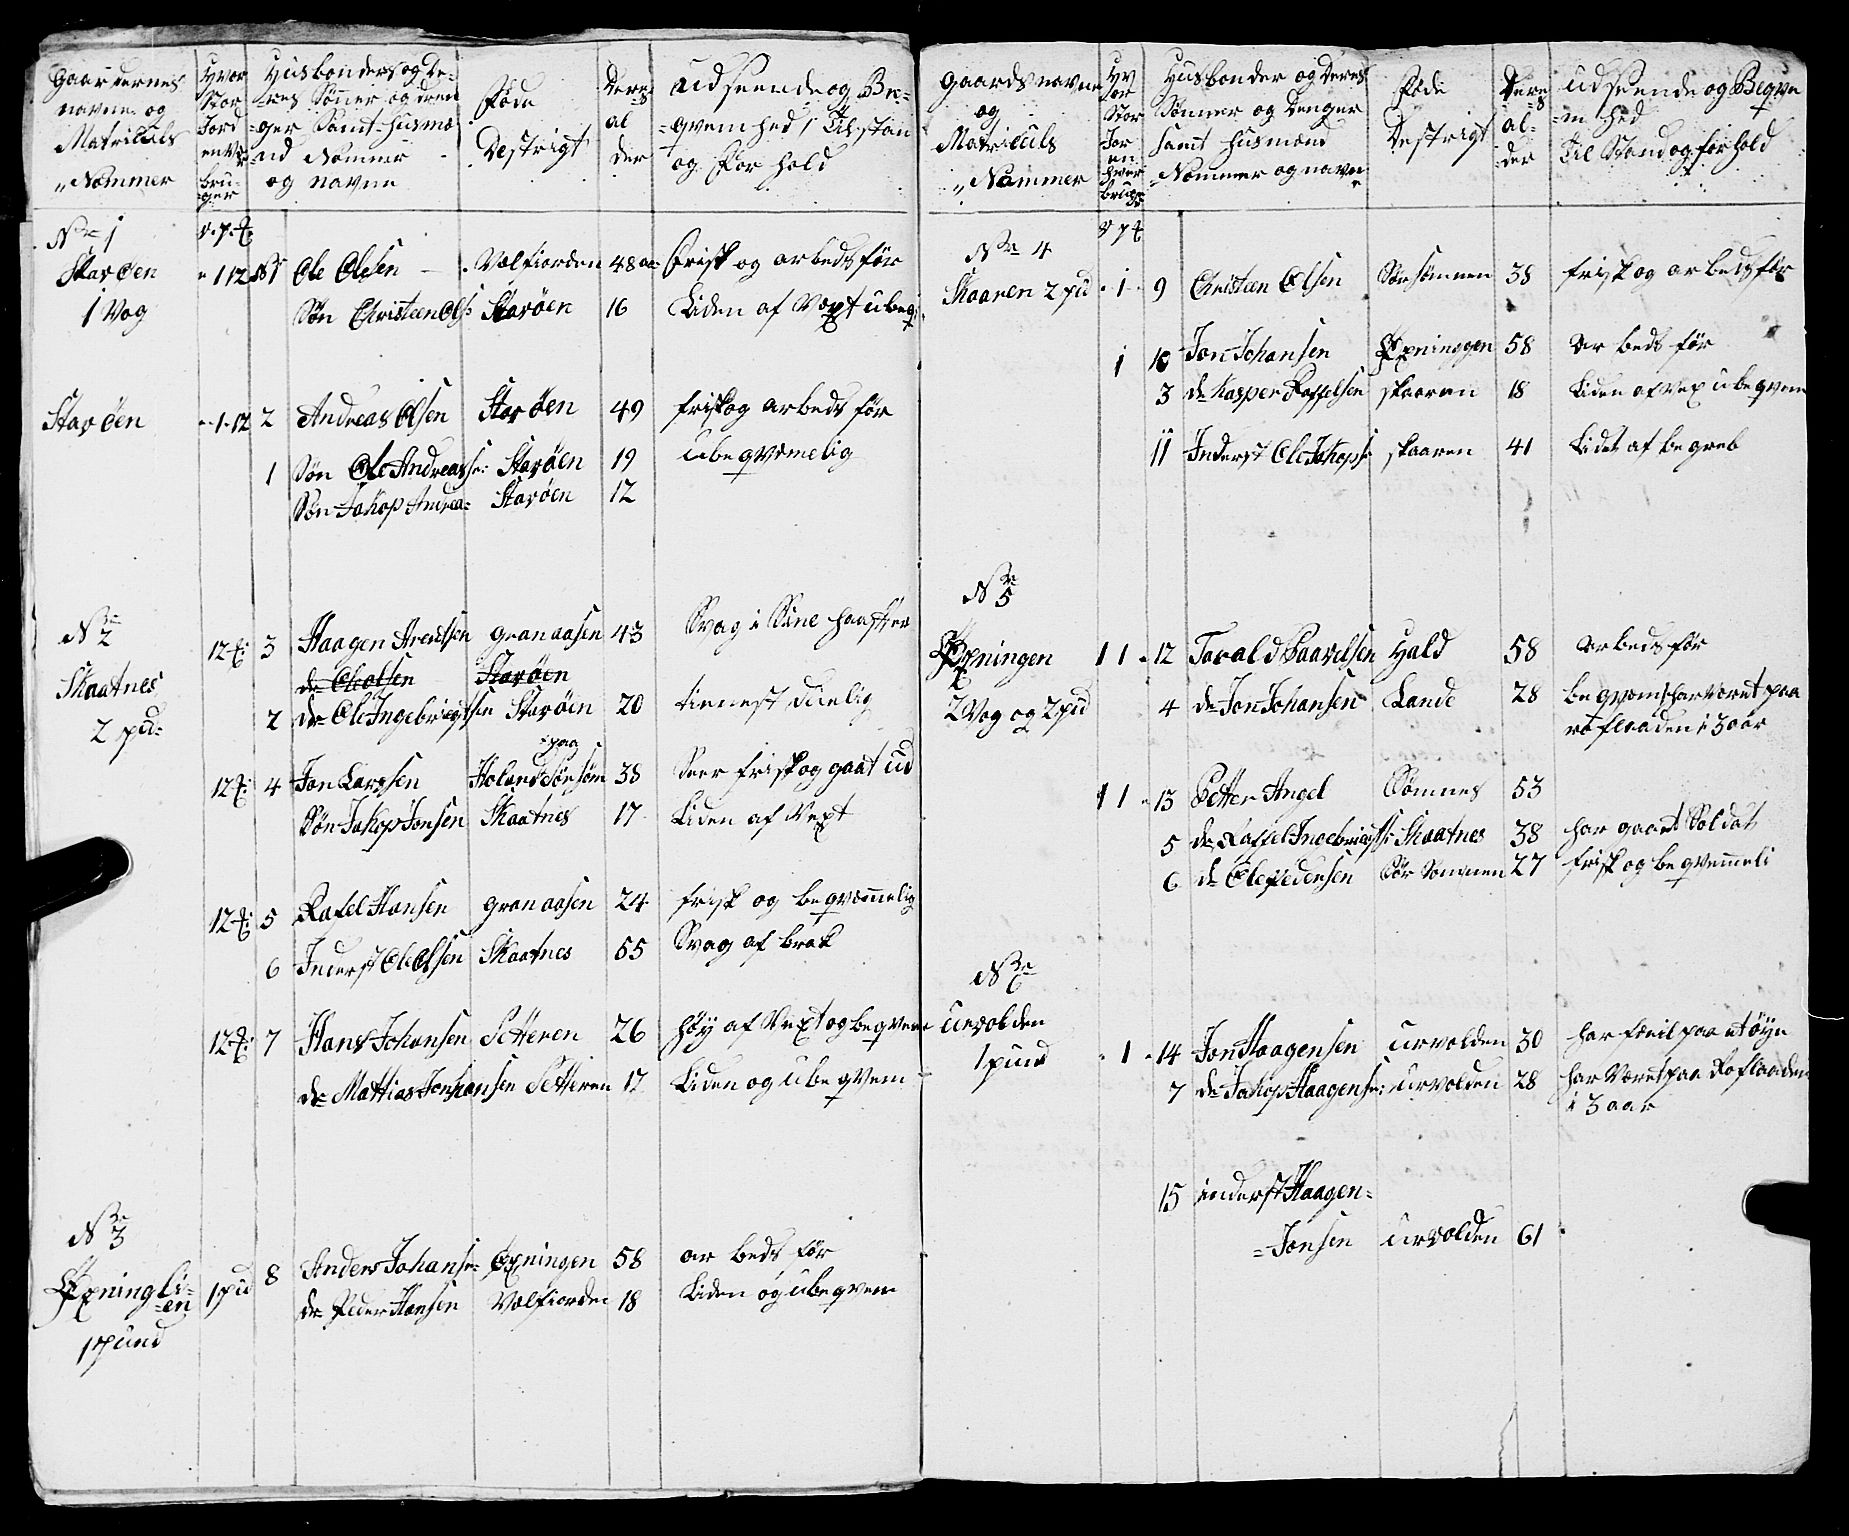 Gaardernes
navne og
Matriculs
Nommer
Hvor
Stor
Jord
en hver
bru-
ger
Husbonders og De-
-res Sönner og dren
-ger Samt Husmæ
nd Nommer
og navne
Föde
Destrigt
Deres
al
der
Udseende og Be-
-qvemhed / Til stan
og For hold
No 1
Staröen
1 Vog
1 12 1 Ole Olesen Velfiorden 48 frisk og arbeds för
Sön Christen Ols: Staröen 16 Liden af Vext ubeq
Staröen 1 12 2 Andreas Olsen Staröen 49 frisk og arbeds för
1 Sön Ole Andreasse: Staröen 19 ubeqvemelig
Sön Jakop Andrea= Staröen 12
No 2
Skaatnes
2 pu:
12 3 Haagen Arentsen granaasen 43 Svag i Sine
dr Ole olsen Staröen
2 dr Ole Ingebrigtsen Staröen 20 tienest duelig
12 4 Jon Larssen 38 Seer frisk og gaat ud
Sön Jakop Jonsen Skaatnes 17 Liden af Vext
12 5 Rafel Hansen granaasen 24 frisk og beqvemmelig
6 Inderst Ole Olsen Skaatnes 55 Svag af brak
12 7 Hans Johansen Setteren 26 höy af Vext og beqvem
dr Mattias Johansen Setteren 17 Liden og ubeqvem
No 3
Öxningli-
-en
1 pund
1 pu 8 Anders Johanse= Öxningen 58 ar beds för
dr Peder Hansen Velfiorde 18 Liden og ubeqvem
Gaards navne
og
Matriculs
Nommer
Hv
or
Stor
Jor
en
hver
bruger
Husbonder og Deres
Sönner og Drenger
Samt Husmænd
Nommer og navne
Föde
Destrigt
Deres
al-
der
Udseende og Beqve
-m hed
Til Stand og forhold
No 4
Skaaren 2 pu 1 9 Christen Olsen Sörsömnen 38 frisk og arbedsför
1 10 Jon Johansen Öxninggen 58 Ar beds för
3 dr Kasper Raffelsen skaaren 18 Liden af vex ubeqvem
11 Inderst Ole Jakops: skaaren 41 Lidet af begreb
No 5
Öxningen
2 Vog og 2 pu
1 1 12 Torald Paavelsen Hald 58 arbeds för
4 dr Jon Johansen Lande 28 beqvem har været paa
ro flaaden i 3 aar
1 1 13 Petter Angel Sömnes 53
5 dr Raffel Ingebrigts: Skaatnes 38 har gaaet Soldat
6 dr Ole Pedersen Sör Somnen 27 frisk og beqvemmeli
No 6
Urvolden
1 pund
1 14 Jon Haagensen Urvolden 30 har feeil paa et öye
7 dr Jakop Haagense: Urvolden 28 har Været paa Roflaaden
i 3 aar
15 inderst Haagen=
=Jonsen Urvolden 61